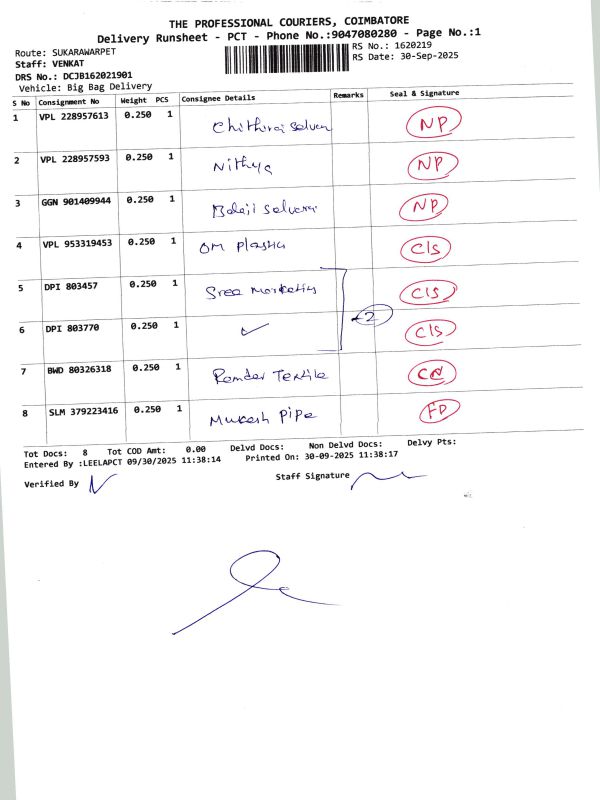 THE PROFESSIONAL COURIERS, COIMBATORE
Delivery Runsheet - PCT - Phone No.:9047080280 - Page No.:1
Route: SUKARAWARPET
RS No.: 1620219
Staff: VENKAT
RS Date: 30-Sep-2025
DRS No.: DCJB162021901
Vehicle: Big Bag Delivery
S No Consignment No Weight PCS Consignee Details Remarks Seal & Signature
1 VPL 228957613 0.250 1 NP
2 VPL 228957593 0.250 1 Nithya NP
3 GGN 901409944 0.250 1 NP
4 VPL 953319453 0.250 1 OM Plastic C/S
5 DPI 803457 0.250 1 Sree Marketing C/S
6 DPI 803770 0.250 1 ✓ 2 C/S
7 BWD 80326318 0.250 1 Textile
8 SLM 379223416 0.250 1 Mukesh Pipe FD
Tot Docs: 8 Tot COD Amt: 0.00 Delvd Docs: Non Delvd Docs: Delvy Pts:
Entered By :LEELAPCT 09/30/2025 11:38:14 Printed On: 30-09-2025 11:38:17
Verified By
Staff Signature